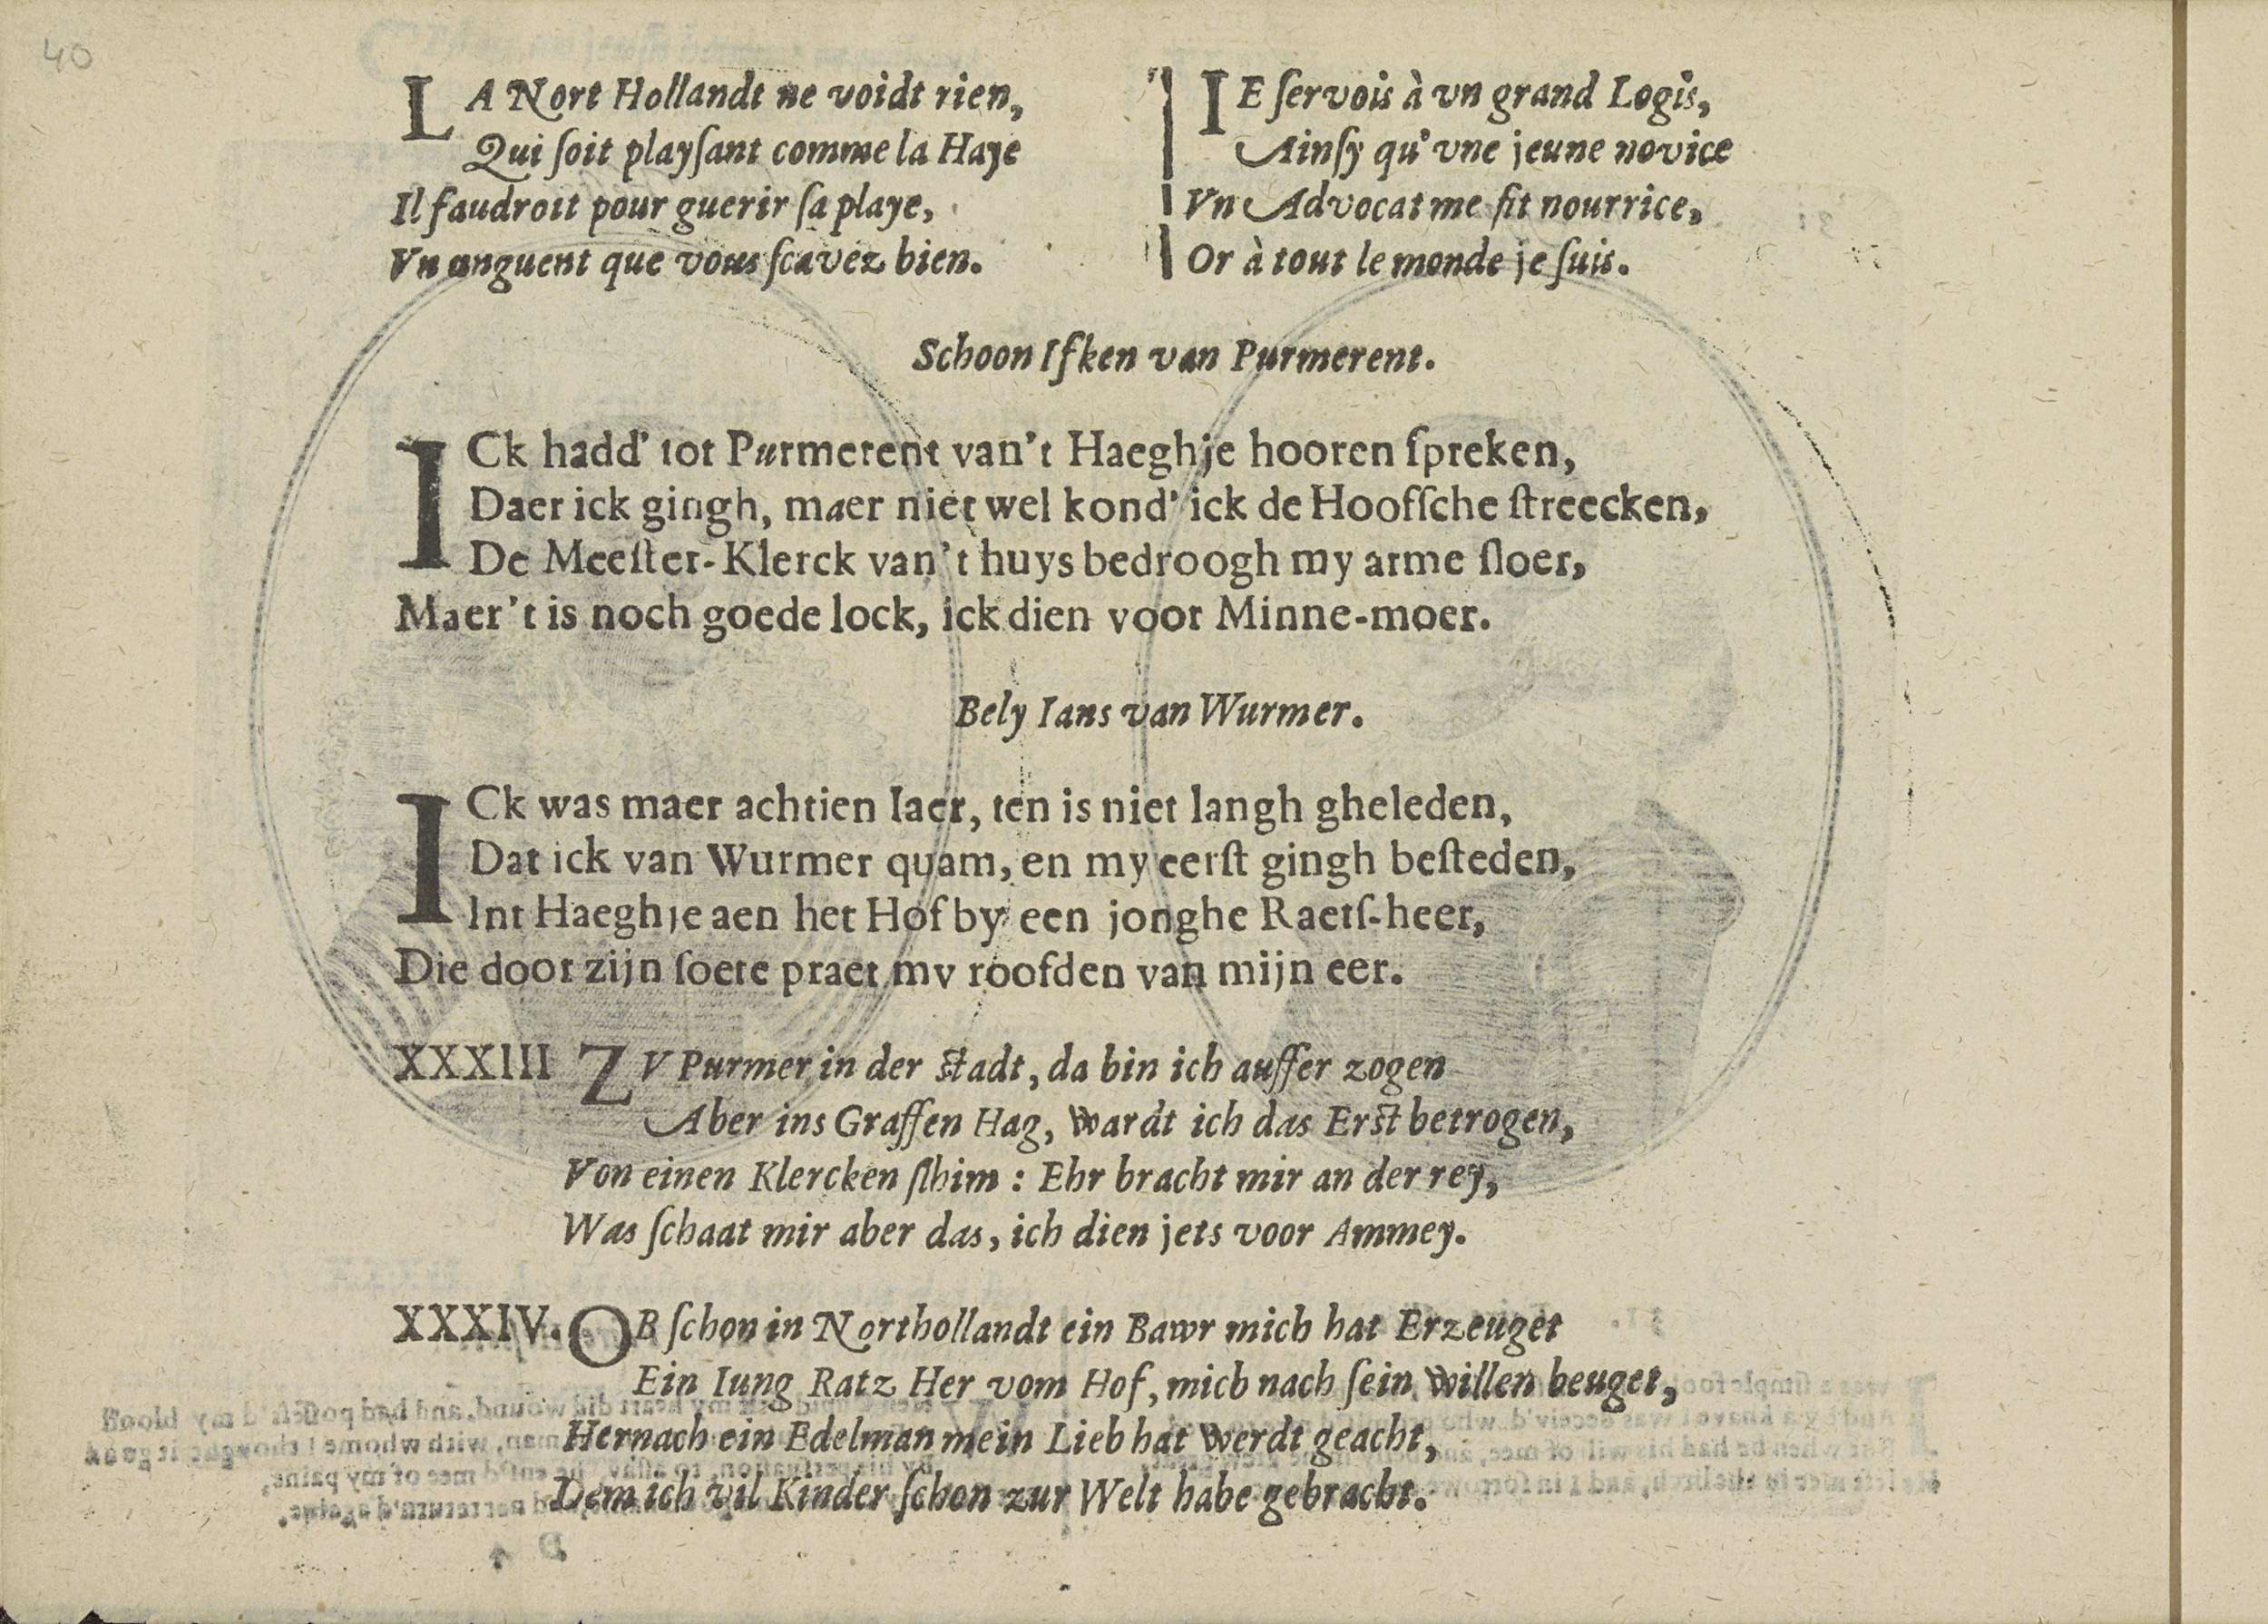 40
LA Nort Hollandt ne voidt rien,
Qui ſoit playſant comme la Haye
Il faudroit pour guerir ſa playe,
Vn unguent que vous ſcavez bien.
IE ſervois à vn grand Logis,
Ainſy qu'vne jeune novice
Vn Advocat me fit nourrice,
Or à tout le monde je ſuis.
Schoon Iſken van Purmerent.
ICk hadd' tot Purmerent van't Haeghje hooren ſpreken,
Daer ick gingh, maer niet wel kond' ick de Hoofſche ſtreecken,
De Meeſter-Klerck van't huys bedroogh my arme ſloer,
Maer't is noch goede lock, ick dien voor Minne-moer.
Bely Ians van Wurmer.
ICk was maer achtien Iaer, ten is niet langh gheleden,
Dat ick van Wurmer quam, en my eerſt gingh beſteden,
Int Haeghje aen het Hof by een jonghe Raetſ-heer,
Die door zijn ſoete praet my roofden van mijn eer.
XXXIII ZV Purmer in der ſtadt, da bin ich auſſer zogen
Aber ins Graffen Hag, wardt ich das Erſt betrogen,
Von einen Klercken ſlhim : Ehr bracht mir an der rey,
Was ſchaat mir aber das, ich dien jets voor Ammey.
XXXIV. OB ſchon in Northollandt ein Bawr mich hat Erzeuget
Ein Iung Ratz Her vom Hof, mich nach ſein willen beuget,
Hernach ein Edelman mein Lieb hat werdt geacht,
Dem ich vil Kinder ſchon zur Welt habe gebracht.